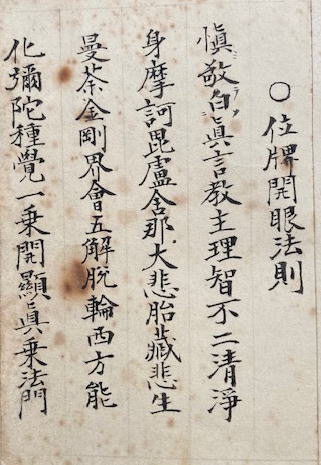 〇位牌開眼法則
愼敬白眞言教主理智不二清淨
身摩訶毘盧舍那大悲胎藏悲生
曼荼金剛界會五解脱輪西方能
化彌陀種覺一乗開顯眞乗法門